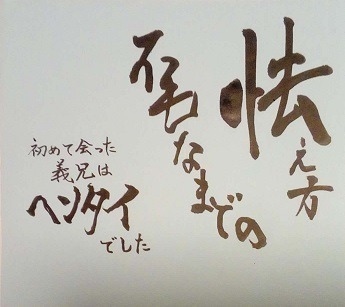 怯え方
不毛なまでの
初めて会った
義兄は
ヘンタイ
でした